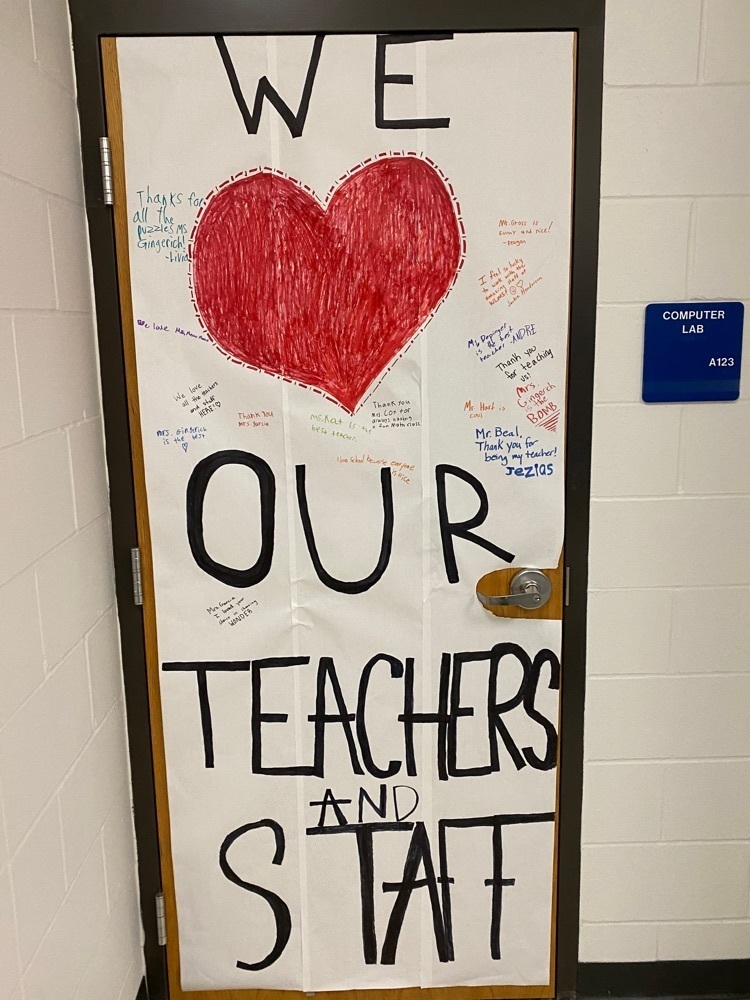 WE
Thanks for
all the
puzzles Ms.
Gingerich!
-Livia
Mr. Gross is
funny and nice!
-Reagan
I feel so lucky
to work with the
amazing staff at
We love
Mr. Depinget
is the best
teacher -ANDRE
Thank you
for teaching
us!
Mrs.
Gingerich
is the
BOMB
We love
all the teachers
and staff
HERE!
Mrs. Gingerich
is the best
Thank you
Mrs. Garcia
Ms. Kat is the
best teacher
Thank you
Mrs. Cox for
always having
a fun Math class
Mr. Hart is
cool
Mr. Beal,
Thank you for
being my teacher!
Jezias
I love School because everyone
is nice
OUR
Mrs. Garcia
I loved your
class in
WONDER
TEACHERS
AND
STAFF
COMPUTER
LAB
A123